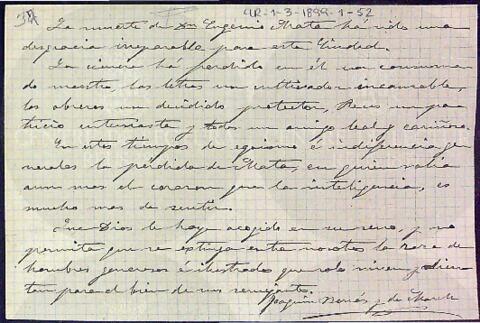 34
UR-1-3-1899-1-52
La muerte de Dn Eugenio Mata há sido una
desgracia irreparable para esta Ciudad.
La ciencia há perdido en él un consumado
maestro, las letras un cultivador incansable,
los obreros un decidido protector, Reus un pa-
tricio entusiasta y todos un amigo leal y cariñoso.
En estos tiempos de egoismo é indiferencia ge-
nerales la perdida de Mata, en quien valia
aun mas el corazon que la inteligencia, es
mucho mas de sentir.
Que Dios le haya acogido en su seno, y no
permita que se extinga entre nosotros la raza de
hombres generosos é ilustrados que solo viven y alien-
tan para el bien de sus semejantes.
Joaquin Borrás y de March